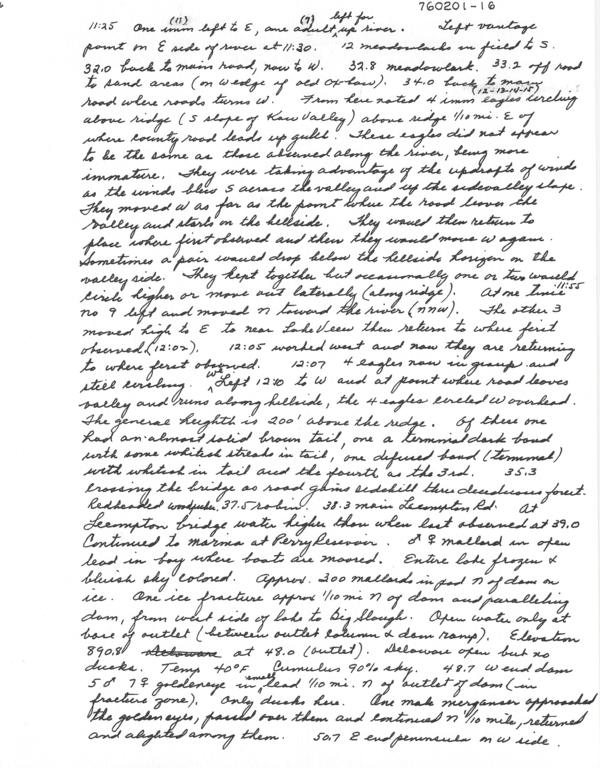 760201-16
(11) (9) left for
11:25 One imm left to E, one adult, up river. Left vantage
point on E side of river at 11:30. 12 meadowlarks in field to S.
32.0 back to main road, now to W. 32.8 meadowlark. 33.2 off road
to sand areas (on W edge of old Oxbow). 34.0 back to main
road where roads turns W. From here noted 4 imm (12-13-14-15) eagles circling
above ridge (S slope of Kaw Valley) above ridge 1/10 mi. E of
where county road leads up gulch. These eagles did not appear
to be the same as those observed along the river, being more
immature. They were taking advantage of the updrafts of winds
as the winds blew S across the valley and up the sidevalley slope.
They moved W as far as the point where the road leaves the
valley and starts on the hillside. They would then return to
place where first observed and then they would move W again.
Sometimes a pair would drop below the hillside horizon on the
valley side. They kept together but occasionally one or two would
circle higher or move out laterally (along ridge). At one time 11:55
no 9 left and moved N toward the river (NNW). The other 3
moved high to E to near Lake View then return to where first
observed (12:02). 12:05 worked west and now they are returning
to where first observed. 12:07 4 eagles now in group and
still circling. We Left 12:10 to W and at point where road leaves
valley and runs along hillside, the 4 eagles circled W overhead.
The general heighth is 200' above the ridge. Of these one
had an almost solid brown tail, one a terminal dark band
with some whitish streaks in tail, one defused band (terminal)
with whitish in tail and the fourth as the 3rd. 35.3
crossing the bridge as road gains sidehill thru deciduous forest.
Redheaded woodpecker. 37.5 robin. 38.3 main Lecompton Rd. At
Lecompton bridge water higher than when last observed at 39.0
Continued to Marina at Perry Resevoir. ♂ ♀ mallard in open
lead in bay where boats are moored. Entire lake frozen &
bluish sky colored. Approx. 300 mallards in pod N of dam on
ice. One ice fracture approx 1/10 mi N of dam and paralleling
dam, from west side of lake to Big Slough. Open water only at
base of outlet (between outlet column & dam ramp). Elevation
890.8 at 48.0 (outlet). Delaware open but no
ducks. Temp 40°F Cumulus 90% sky. 48.7 W end dam
5♂ 7♀ goldeneye in small lead 1/10 mi. N of outlet of dam (in
fracture zone). Only ducks here. One male merganser approached
the goldeneyes, passed over them and continued N 1/10 mile, returned
and alighted among them. 50.7 E end peninsula on W side